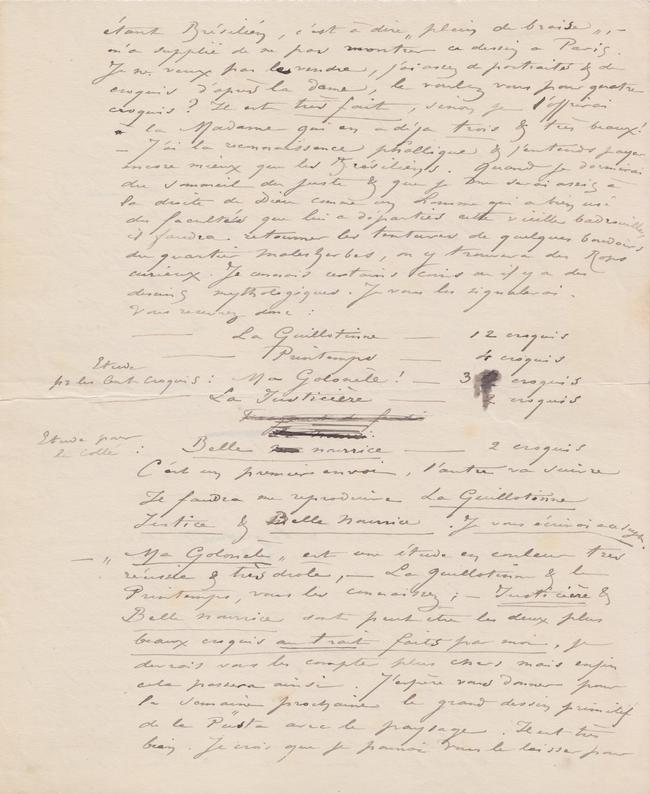 étant Brésilien, c'est à dire „ plein de braise „, –
m'a supplié de ne pas montrer ce dessin à Paris.
Je ne veux pas le vendre, j'ai assez de portraits & de
croquis d'après la dame, le voulez vous pour quatre
croquis? Il est très fait, sinon je l'offrirai
à la Madame qui en a déja trois & très beaux!
– J'ai la reconnaissance phallique & j'entends payer
encore mieux que les Brésiliens. Quand je dormirai
du sommeil du juste & que je serai assis à
la droite de Dieu comme un homme qui a bien usé
des facultés que lui a départies cette vieille
il faudra retourner les tentures de quelques boudoirs
du quartier Malesherbes, on y trouvera des Rops
curieux. Je connais certains coins où il y a des
dessins mythologiques. Je vous les signalerai.
Vous recevez donc :
La Guillotinne — 12 croquis
Printemps — 4 croquis
Etude
pr les Cent Croquis : Ma Colonèle! — 3 croquis
La Justicière — croquis
Etude par
le colle : Belle nourrice — 2 croquis
C'est un premier envoi, l'autre va suivre
Il faudra me reproduire La Guillotinne
Justice & Belle Nourrice. Je vous écrirai à ce sujet.
– „ Ma Colonèle „ est une étude en couleur très
réussie & très drole, – La Guillotinne & le
Printemps, vous les connaissez; – Justicière &
Belle Nourrice sont peut être les deux plus
beaux croquis au trait faits par moi, je
devrais vous les compter plus chers mais enfin
cela passera ainsi. J'espère vous donner pour
la semaine prochaine le grand dessin primitif
de la Pusta avec le paysage. Il est très
bien. Je crois que je pourrai vous le laisser pour